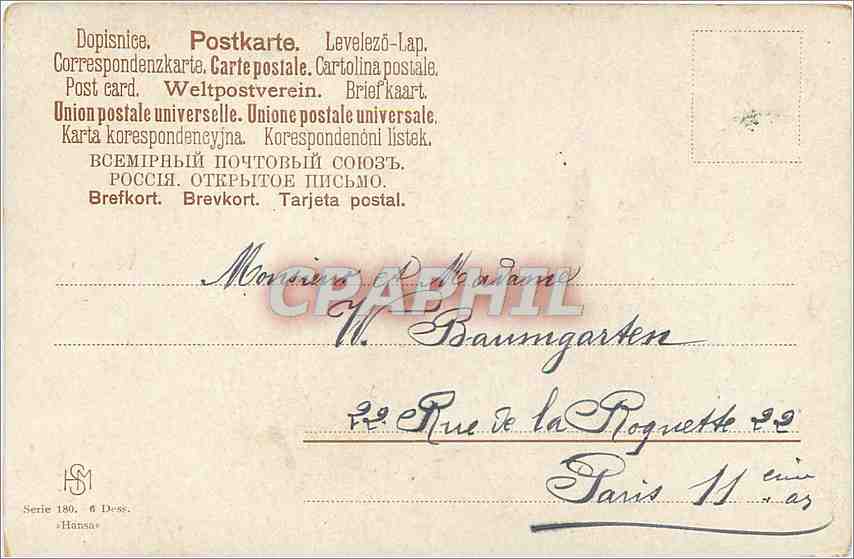 Dopisnice. Postkarte. Levelező-Lap.
Correspondenzkarte. Carte postale. Cartolina postale.
Post card. Weltpostverein. Briefkaart.
Union postale universelle. Unione postale universale.
Karta korespondencyjna. Korespondenčni listek.
ВСЕМІРНЫЙ ПОЧТОВЫЙ СОЮЗЪ.
РОССІЯ. ОТКРЫТОЕ ПИСЬМО.
Brefkort. Brevkort. Tarjeta postal.
Monsieur et Madame
CPAPHIL
W. Baumgarten
22 Rue de la Roquette 22
Paris 11 ème ar
HSM
Serie 180. 6 Dess.
»Hansa«